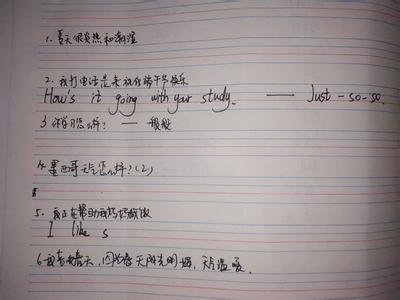 1. 夏天很炎热和潮湿
2. 我打电话是来祝你端午节快乐
How's it going with your study. — Just-so-so.
3 你学习怎么样? — 一般般
4. 墨西哥天气怎么样? (2)
5. 我正在帮助我妈妈做饭
I like s
6. 我喜欢春天,因为春天阳光明媚,天气温暖.